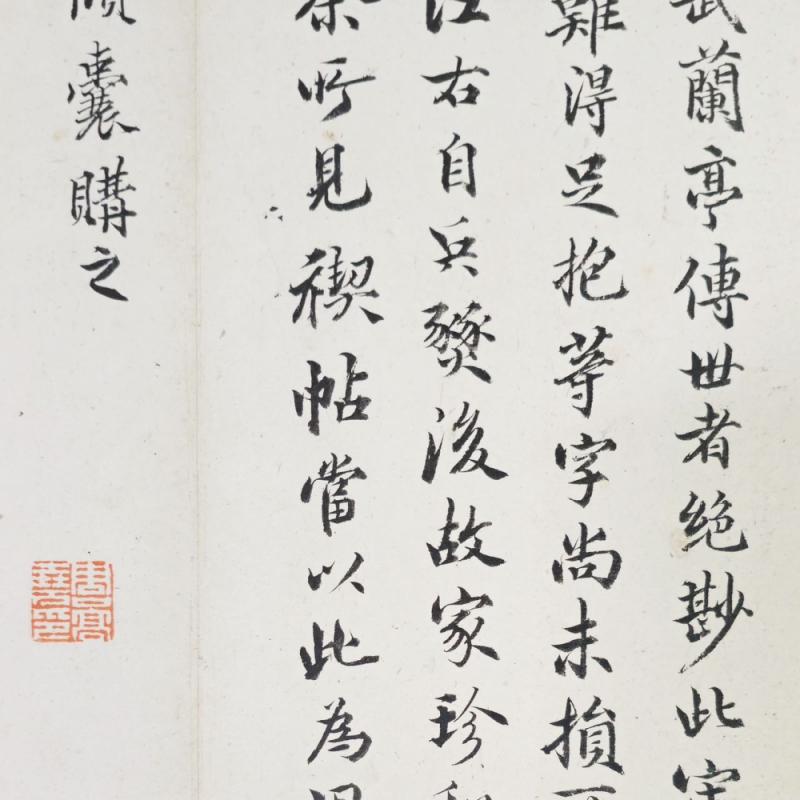 武蘭亭傳世者絶尠此宋
難得足抱等字尚未損可
江右自兵燹後故家珍
余所見禊帖當以此為
傾囊購之